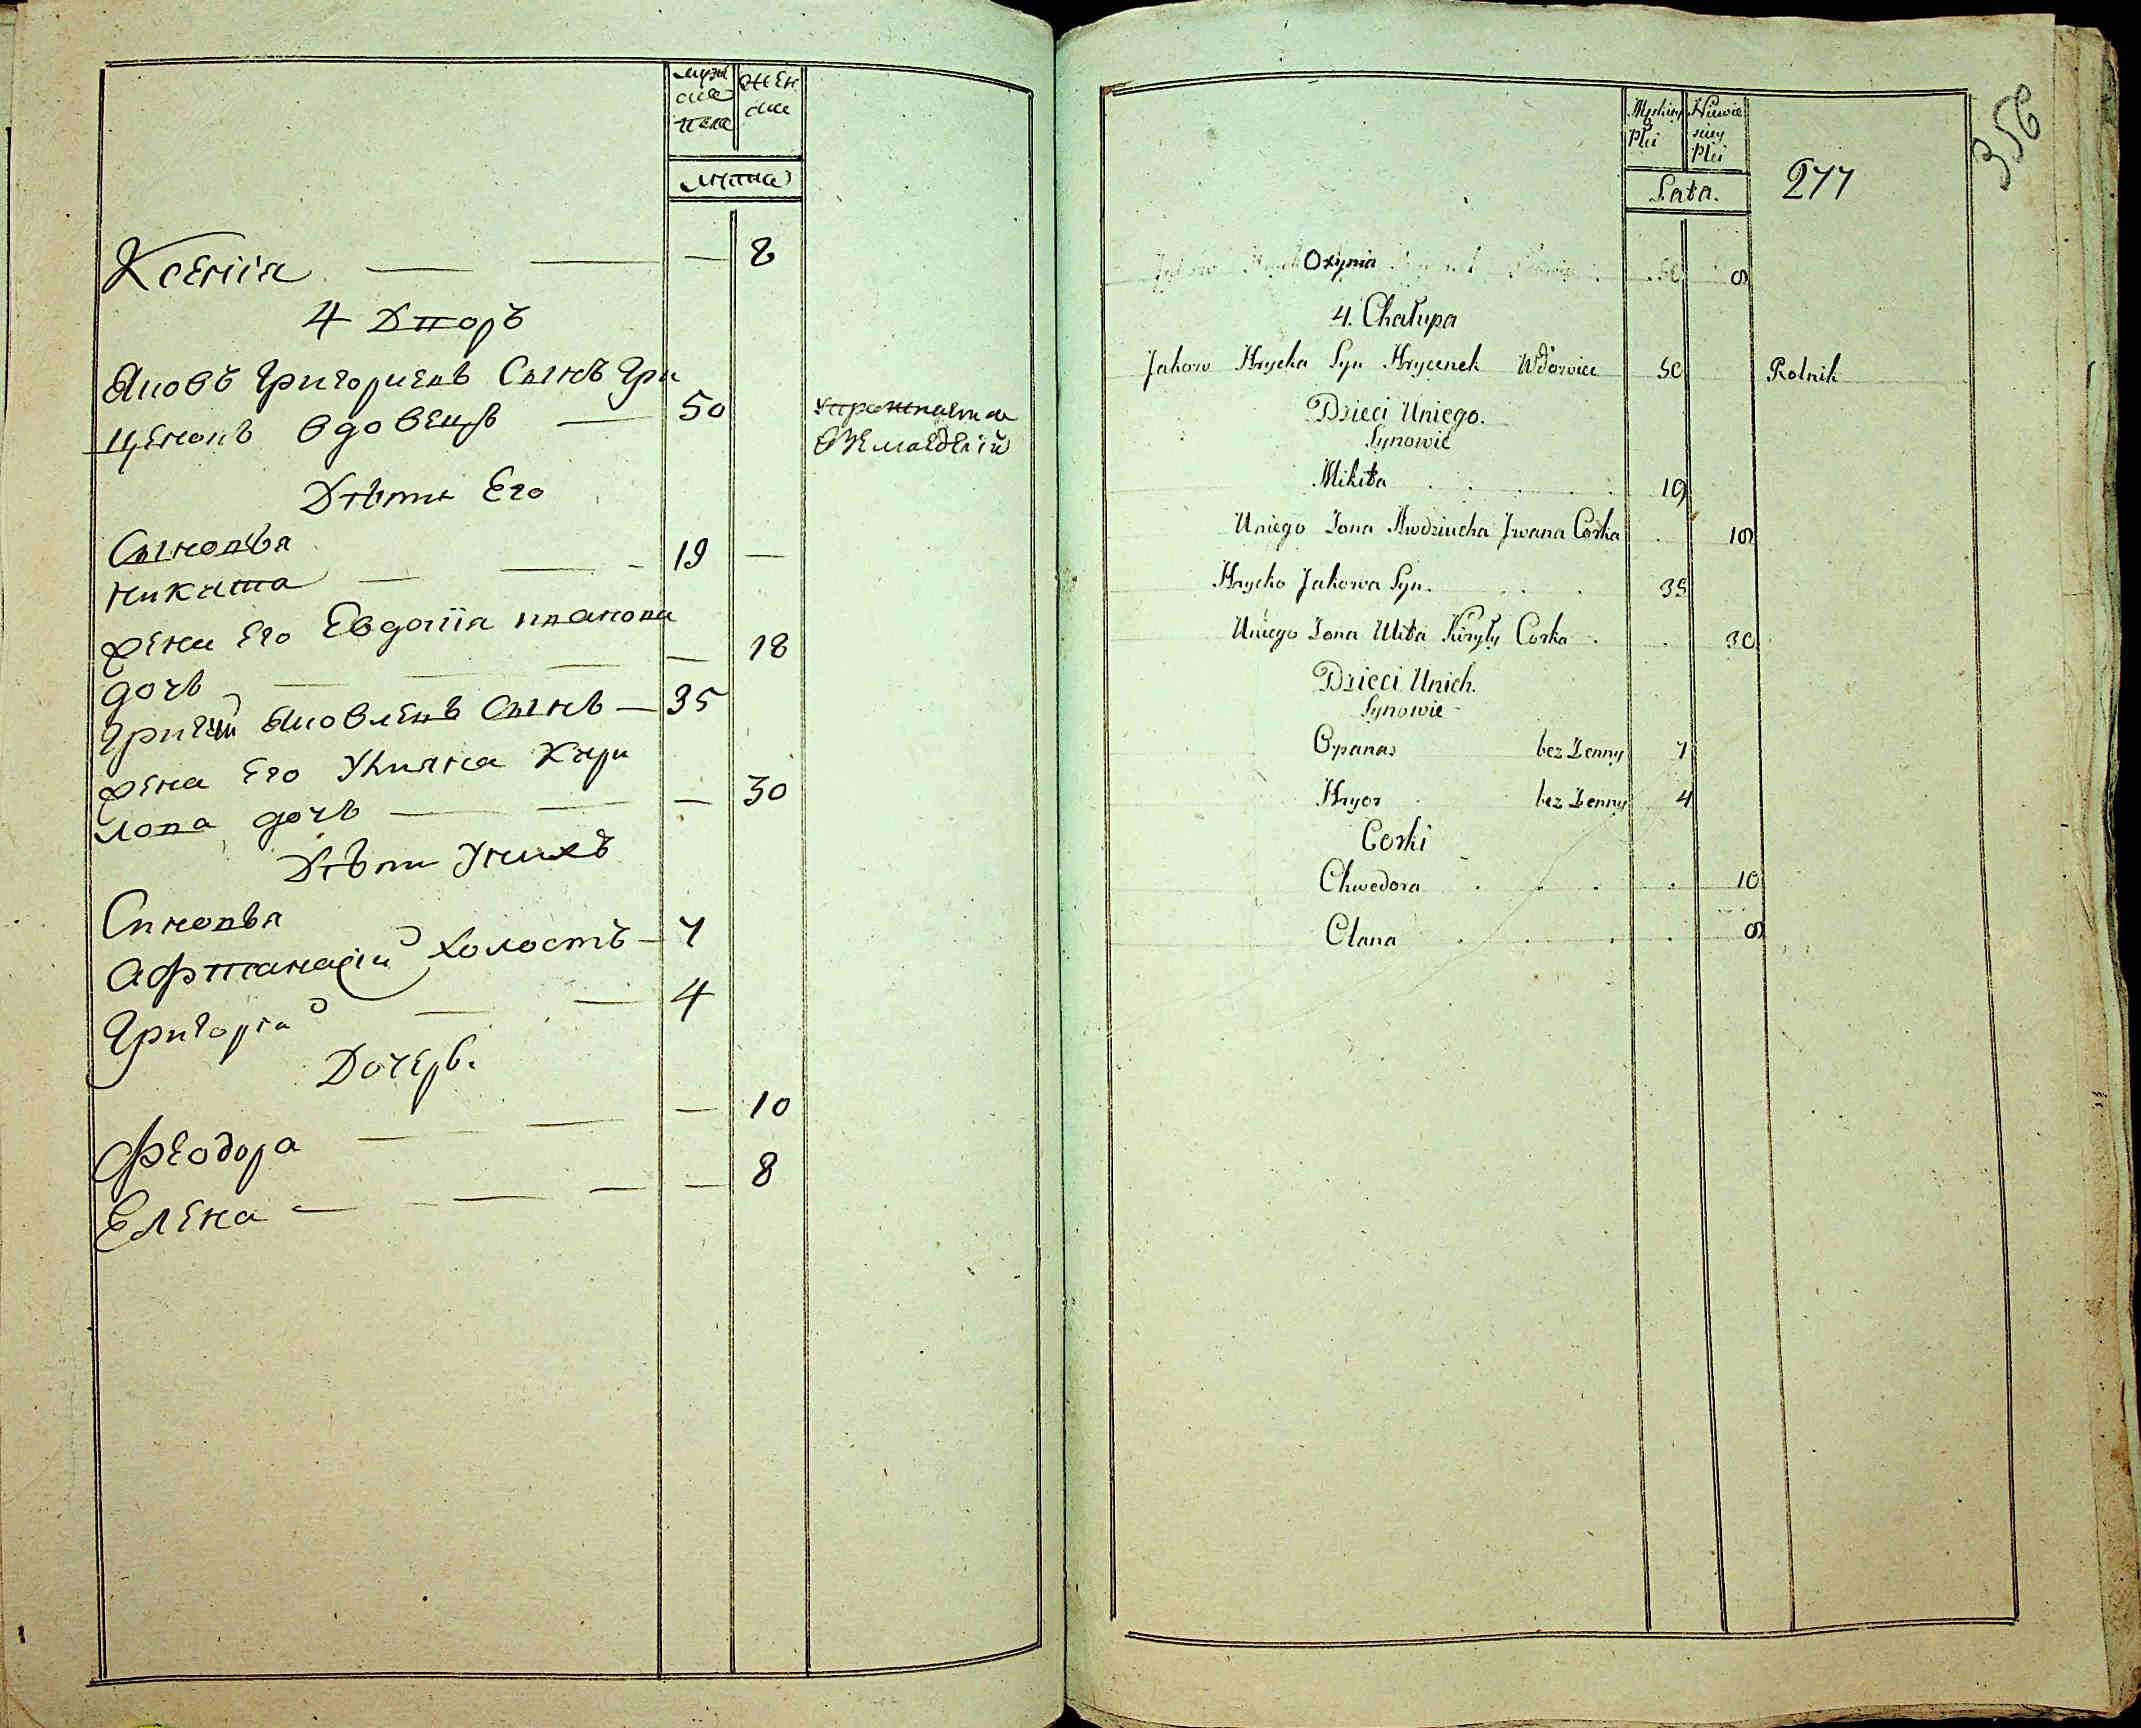 мужска пола
женска
лѣта
Ксеніія — — — 8
4 Дворъ
Яковъ Григориевъ Сынъ Гри
ценокъ вдовецъ — 50
упражняетца
Земледелій
Дѣти Его
Сыновья
Никита — — - 19 —
жена Его Евдокіия ивaнова
дочь — — — — 18
Григоій Яковлевъ Сынъ — 35
жена Его Улияна Кири
лова дочь — — — 30
Дѣти Унихъ
Синовья
Афтанасій холостъ — 7
Григорій — — 4
Дочерь.
Феодора — — — 10
Елена — - — — — 8
356
Męskiey Płci
Niewiesciey Płci
277
Lata.
Oxynia 8
4. Chałupa
Jakow Hrycka Syn Hrycenek Wdowiec 50 Rolnik
Dzieci Uniego.
Synowie
Mikita 19
Uniego Żona Awdziucha Jwana Corka 18
Hrycko Jakowa Syn. 35
Uniego Żona Ulita Kiryły Corka 30
Dzieci Unich.
Synowie
Opanas bez Żenny 7
Hryor bez Żenny 4
Corki
Chwedora 10
Olana 8